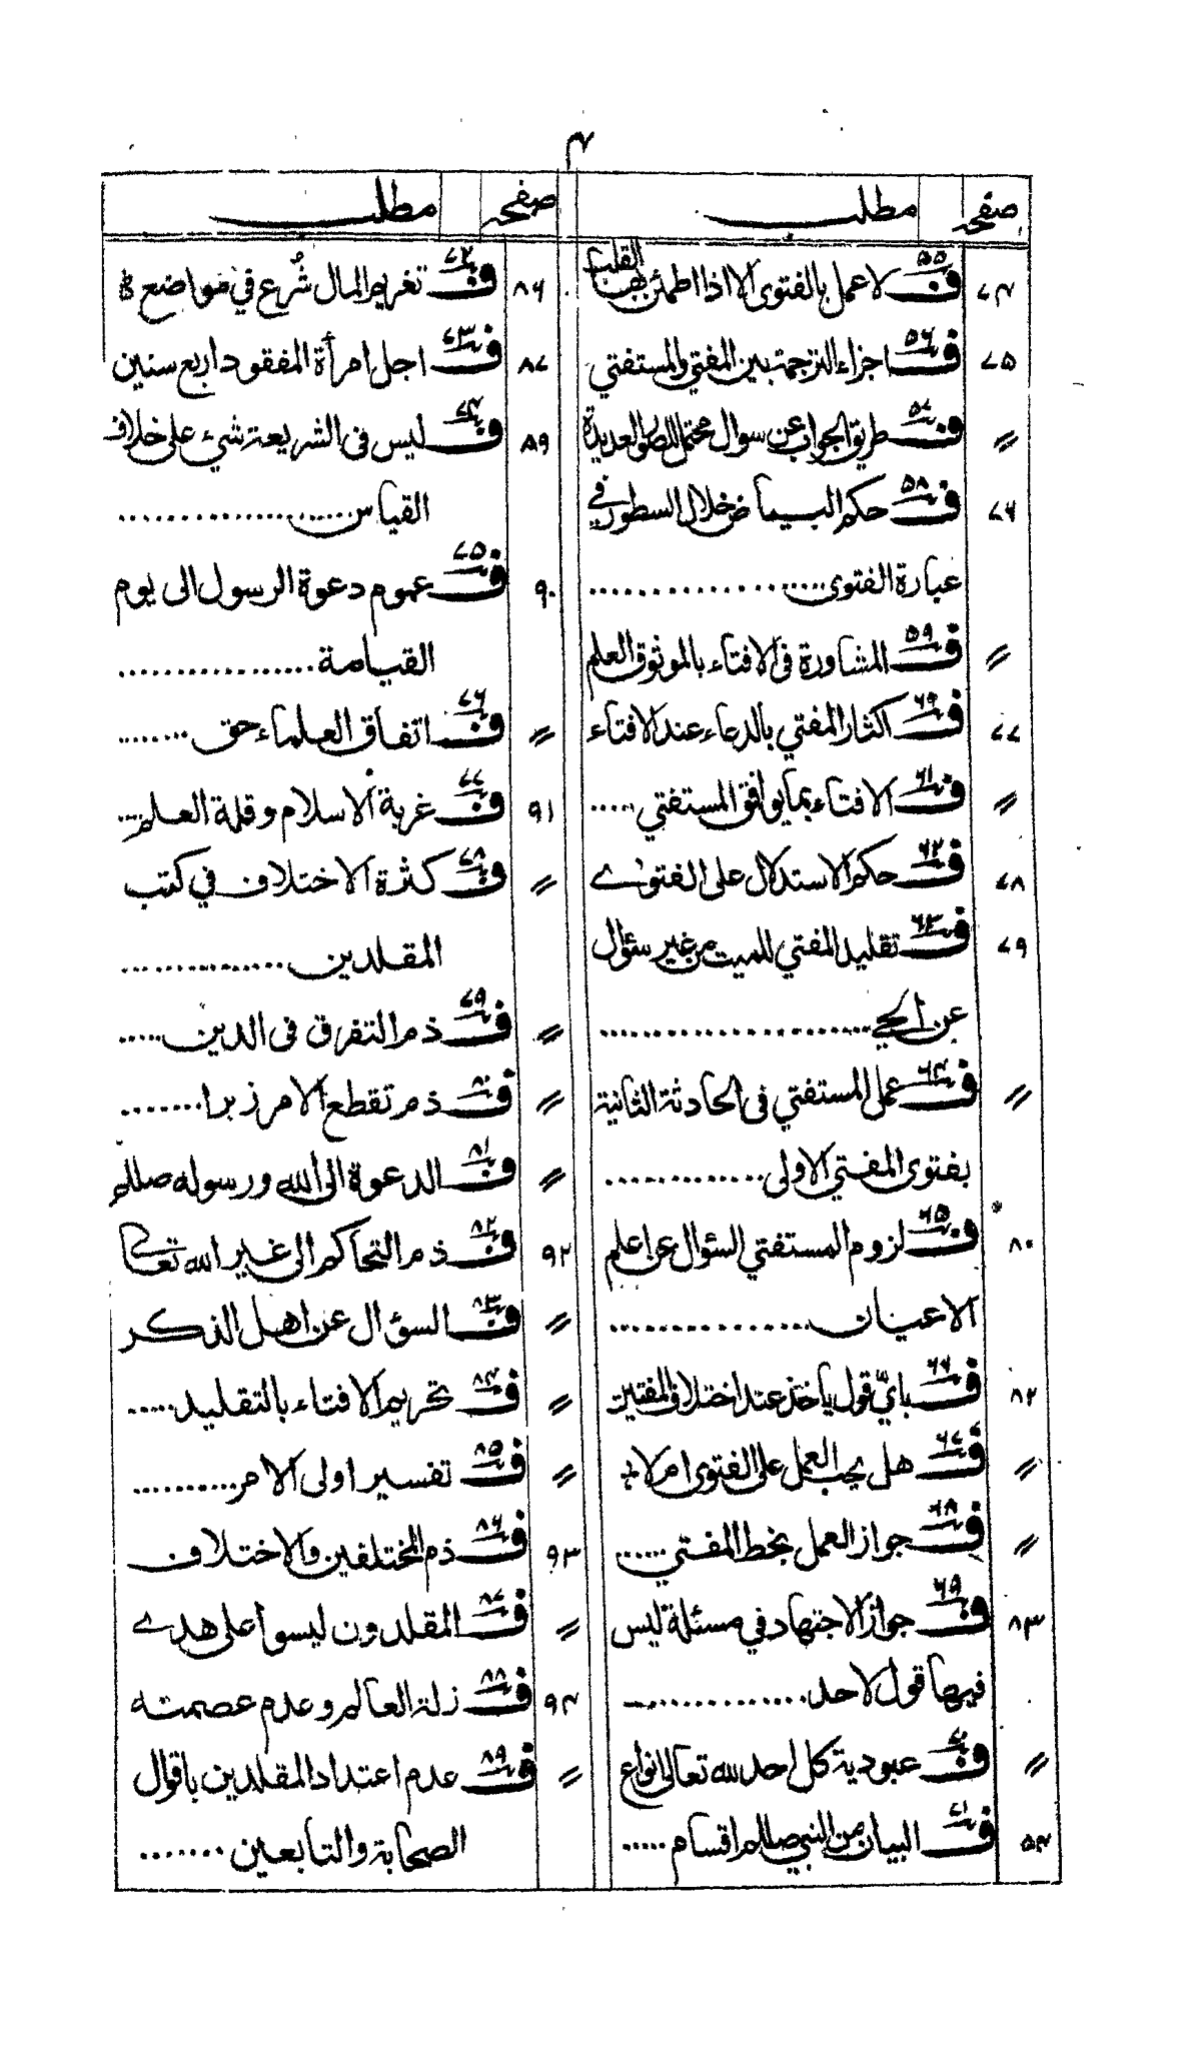 ۴
صفحہ مطلب
۷۴ فــ۵۵ لا عمل بالفتوى الا اذا اطمئن بها القلب
۷۵ فــ۵۶ اجزاء الترجمة بين المفتي والمستفتي
〃 فــ۵۷ طريق الجواب عن سوال محتمل للصور العديدة
۷۶ فــ۵۸ حكم البياض خلال السطور في
عبارة الفتوى ................
〃 فــ۵۹ المشاورة فى الافتاء بالموثوق العلم
۷۷ فــ۶۰ اكثار المفتي بالدعاء عند الافتاء
〃 فــ۶۱ الافتاء بما يوافق المستفتي .....
۷۸ فــ۶۲ حكم الاستدلال على الفتوى
۷۹ فــ۶۳ تقليد المفتي للميت من غير سؤال
عن الحي ........................
〃 فــ۶۴ عمل المستفتي فى الحادثة الثانية
بفتوى المفتي الاولى ..............
۸۰ فــ۶۵ لزوم المستفتي السؤال عن اعلم
الاعيان ................
۸۲ فــ۶۶ باىّ قول ياخذ عند اختلاف المفتين
〃 فــ۶۷ هل يجب العمل على الفتوى ام لا
〃 فــ۶۸ جواز العمل بخط المفتي ......
۸۳ فــ۶۹ جواز الاجتهاد في مسئلة ليس
فيها قول لاحد ..............
〃 فــ۷۰ عبودية كل احد لله تعالى انواع
۵۴ فــ۷۱ البيان من النبي صللم اقسام .....
صفحہ مطلب
۸۶ فــ۷۲ تغريم المال شرع في مواضع
۸۷ فــ۷۳ اجل امرأة المفقود اربع سنين
۸۹ فــ۷۴ ليس فى الشريعة شيء على خلاف
القياس ....................
۹۰ فــ۷۵ عموم دعوة الرسول الى يوم
القيامة .................
〃 فــ۷۶ اتفاق العلماء حق ........
۹۱ فــ۷۷ غربة الاسلام وقلة العلم ....
〃 فــ۷۸ كثرة الاختلاف في كتب
المقلدين ...............
〃 فــ۷۹ ذم التفرق فى الدين .....
〃 فــ۸۰ ذم تقطع الامر زبرا ........
〃 فــ۸۱ الدعوة الى الله ورسوله صللم
۹۲ فــ۸۲ ذم التحاكم الى غير الله تعالى
〃 فــ۸۳ السؤال عن اهل الذكر
〃 فــ۸۴ تحريم الافتاء بالتقليد .....
〃 فــ۸۵ تفسير اولى الامر ..........
۹۳ فــ۸۶ ذم المختلفين والاختلاف
〃 فــ۸۷ المقلدون ليسوا على هدى
۹۴ فــ۸۸ زلة العالم وعدم عصمته
〃 فــ۸۹ عدم اعتداد المقلدين باقوال
الصحابة والتابعين .......